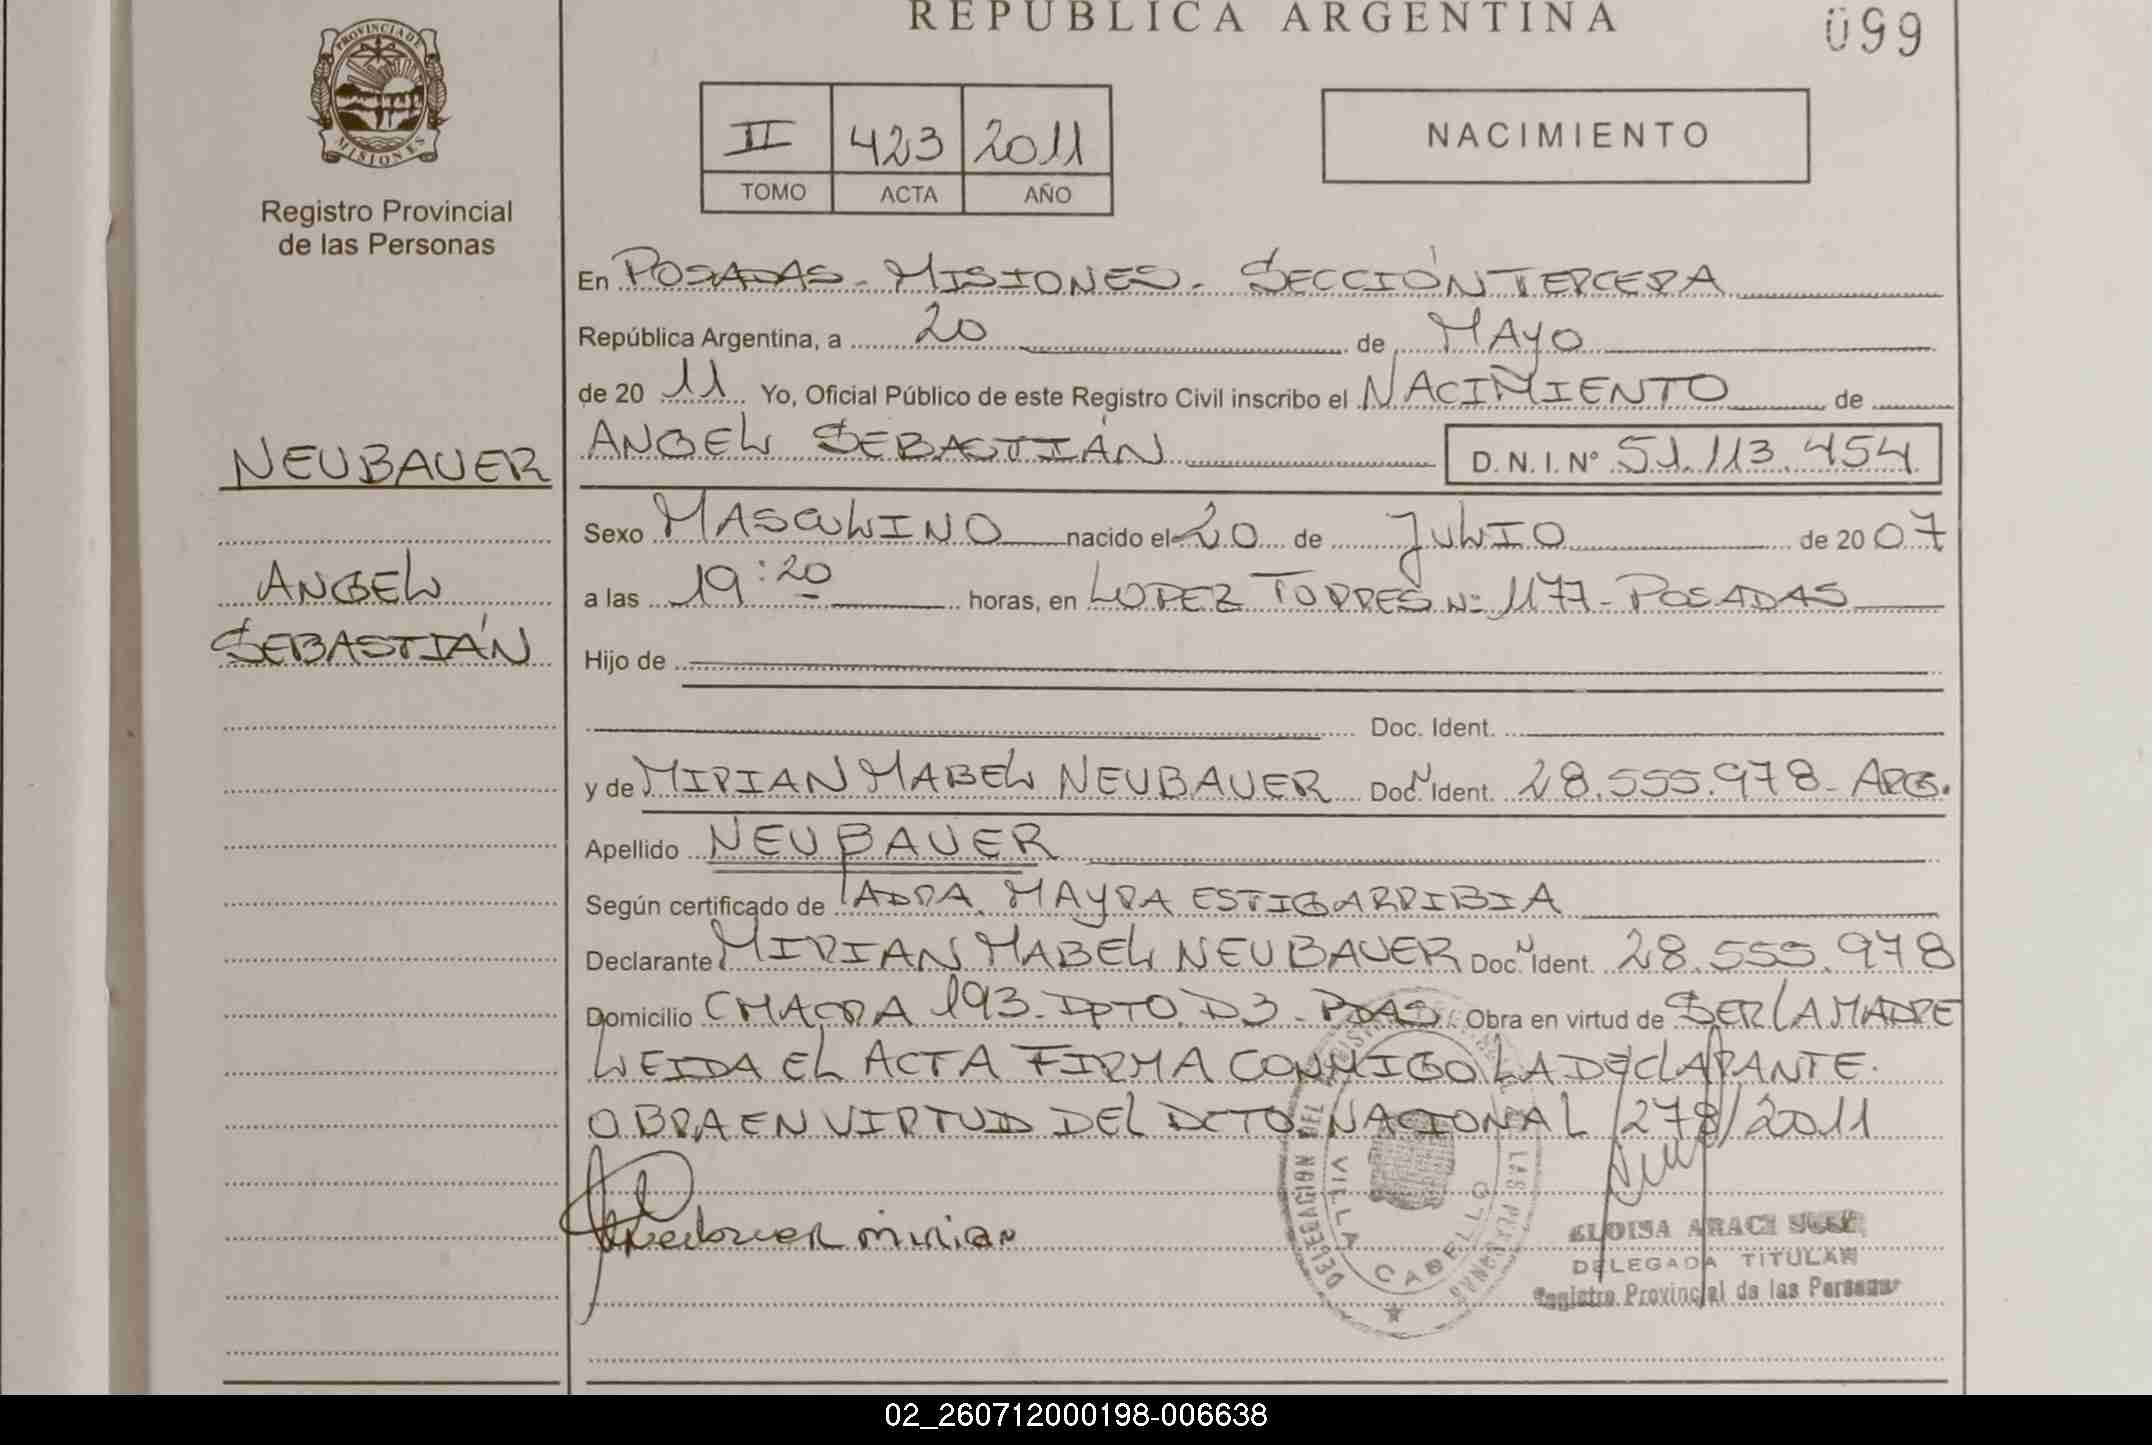 REPUBLICA ARGENTINA
099
PROVINCIA DE
MISIONES
Registro Provincial
de las Personas
II 423 2011
TOMO ACTA AÑO
NACIMIENTO
En POSADAS - MISIONES - SECCIÓN TERCERA
República Argentina, a 20 de MAYO
de 20 11 Yo, Oficial Público de este Registro Civil inscribo el NACIMIENTO de
ANGEL SEBASTIÁN D.N.I. Nº 51.113.454
NEUBAUER
ANGEL
SEBASTIÁN
Sexo MASCULINO nacido el 20 de JULIO de 20 07
a las 19:20 horas, en LOPEZ TORRES Nº 1177 - POSADAS
Hijo de
Doc. Ident.
y de MIRIAN MABEL NEUBAUER Doc. Ident. 28.555.978 - ARG.
Apellido NEUBAUER
Según certificado de MAYRA ESTIGARRIBIA
Declarante MIRIAN MABEL NEUBAUER Doc. Ident. 28.555.978
Domicilio CHACRA 193 - DPTO. D3 - PDAS Obra en virtud de SER LA MADRE
LEIDA EL ACTA FIRMA CONMIGO LA DECLARANTE.
OBRA EN VIRTUD DEL DCTO. NACIONAL 278/2011
Neubauer mirian
DELEGACION DEL REGISTRO LAS PERSONAS
VILLA CABELLO
ELOISA ARACI
DELEGADA TITULAR
Registro Provincial de las Personas
02_260712000198-006638